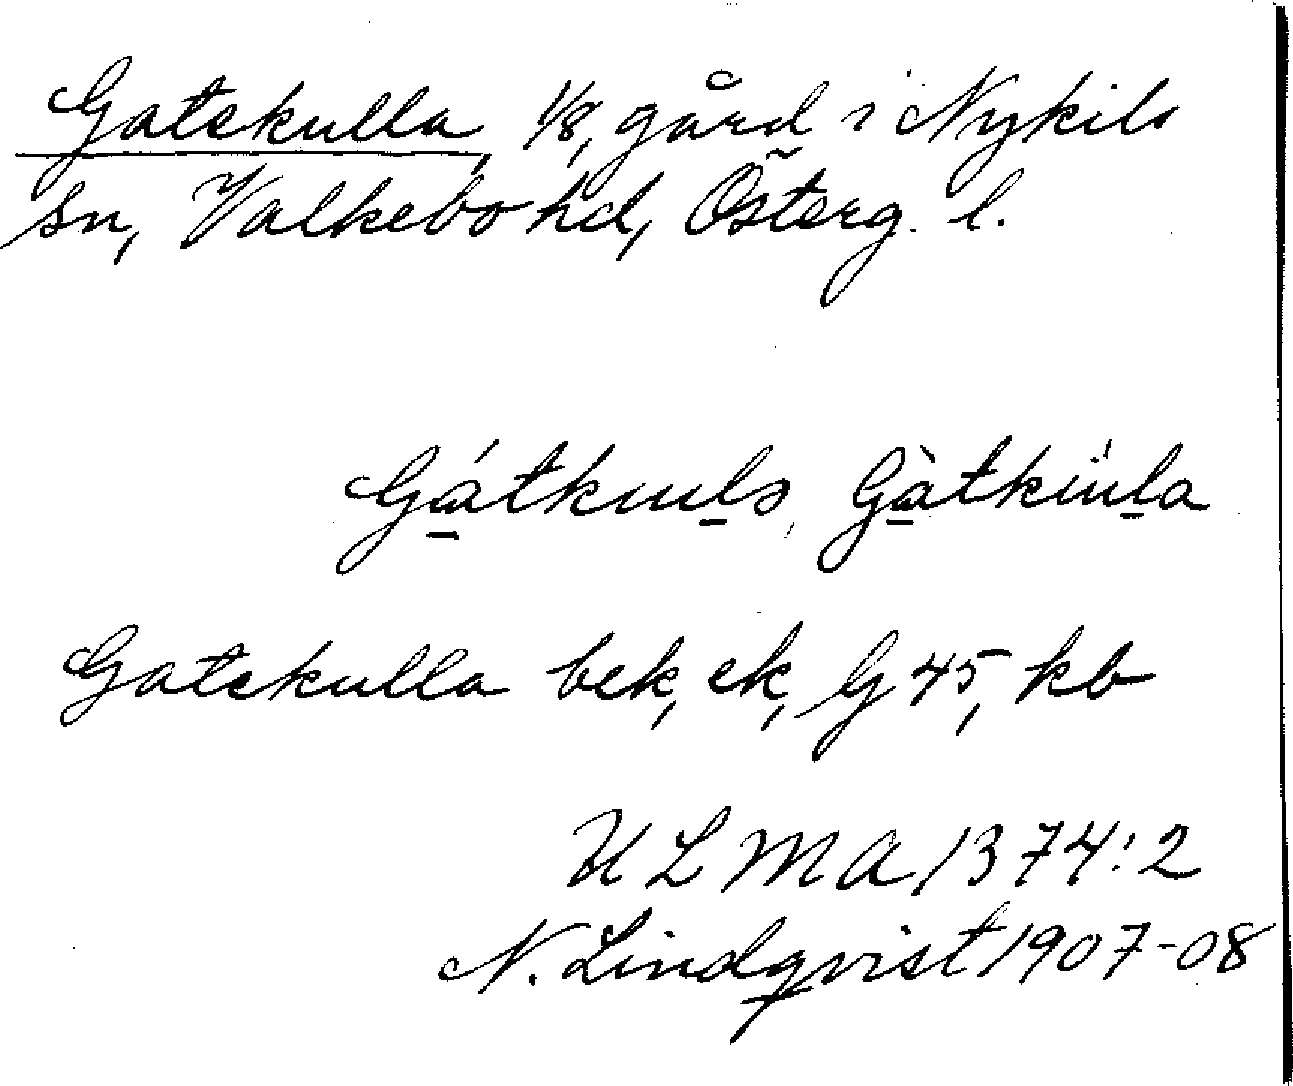 Gatekulla, 1/8, gård i Nykils
sn, Valkebo hd, Österg. l.
Gátkuls, Gàtkúla
Gatekulla bek, ek, G 45, kb
ULMA 1374:2
N. Lindqvist 1907-08